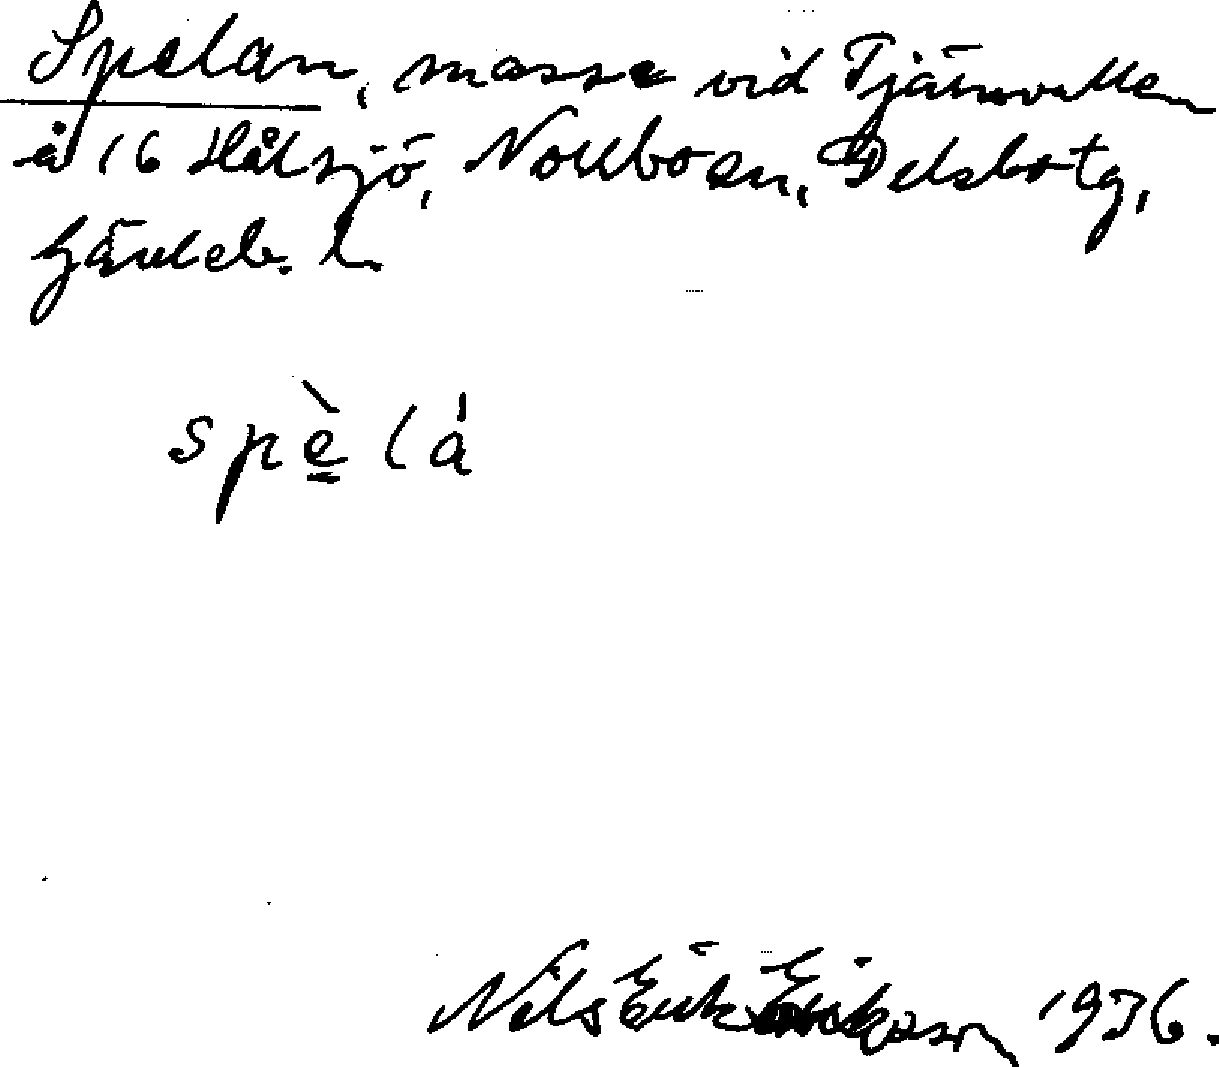 Spelan, mosse vid Tjärnvallen
å 16 Hålsjö, Norrboan, Delsbo tg,
Gävleb. l.
spèlá
Nils Erik Eriksson 1936.